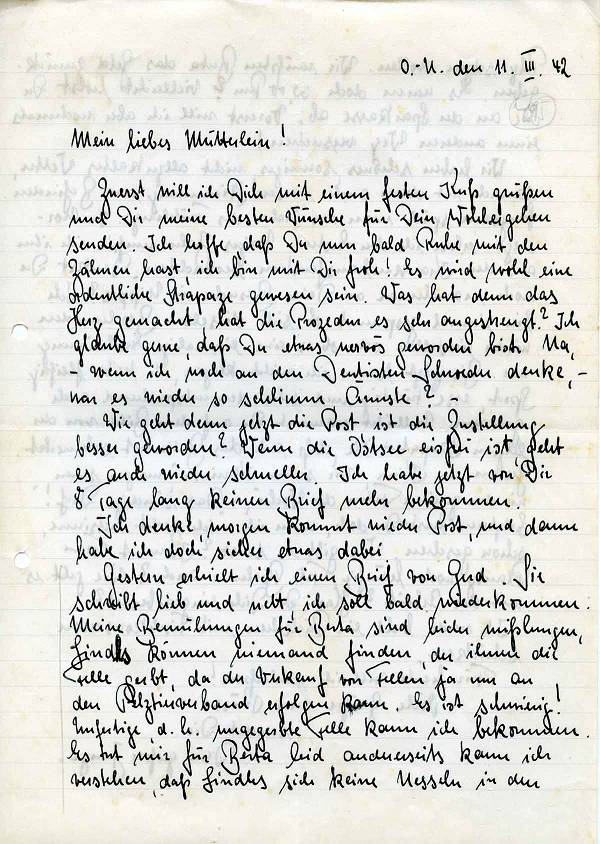 O.-U. den 11. III. 42
Mein liebes Mütterlein!
Zuerst will ich Dich mit einem festen Kuß grüßen
und Dir meine besten Wünsche für Dein Wohlergehen
senden. Ich hoffe daß Du nun bald Ruhe mit den
Zähnen hast, ich bin mit Dir froh! Es wird wohl eine
ordentliche Strapaze gewesen sein. Was hat denn das
Herz gemacht, hat die Prozedur es sehr angestrengt? Ich
glaube gerne, daß Du etwas nervös geworden bist. Na,
– wenn ich noch an den Dentisten Schroeder denke, –
war es wieder so schlimm Ärmste? –
Wie geht denn jetzt die Post ist die Zustellung
besser geworden? Wenn die Ostsee eisfrei ist, geht
es auch wieder schneller. Ich habe jetzt von Dir
8 Tage lang keinen Brief mehr bekommen.
Ich denke, morgen kommt wieder Post, und dann
habe ich doch sicher etwas dabei
Gestern erhielt ich einen Brief von . Sie
schreibt lieb und nett ich soll bald wiederkommen.
Meine Bemühungen für Berta sind leider mißlungen,
können niemand finden, der ihnen die
Felle gerbt, da der Verkauf von Fellen ja nur an
den Pelztierverband erfolgen kann. Es ist schwierig!
Unfertige, d.h. ungegerbte Felle kann ich bekommen.
Es tut mir für Berta leid andererseits kann ich
verstehen, daß sich keine Nesseln in den